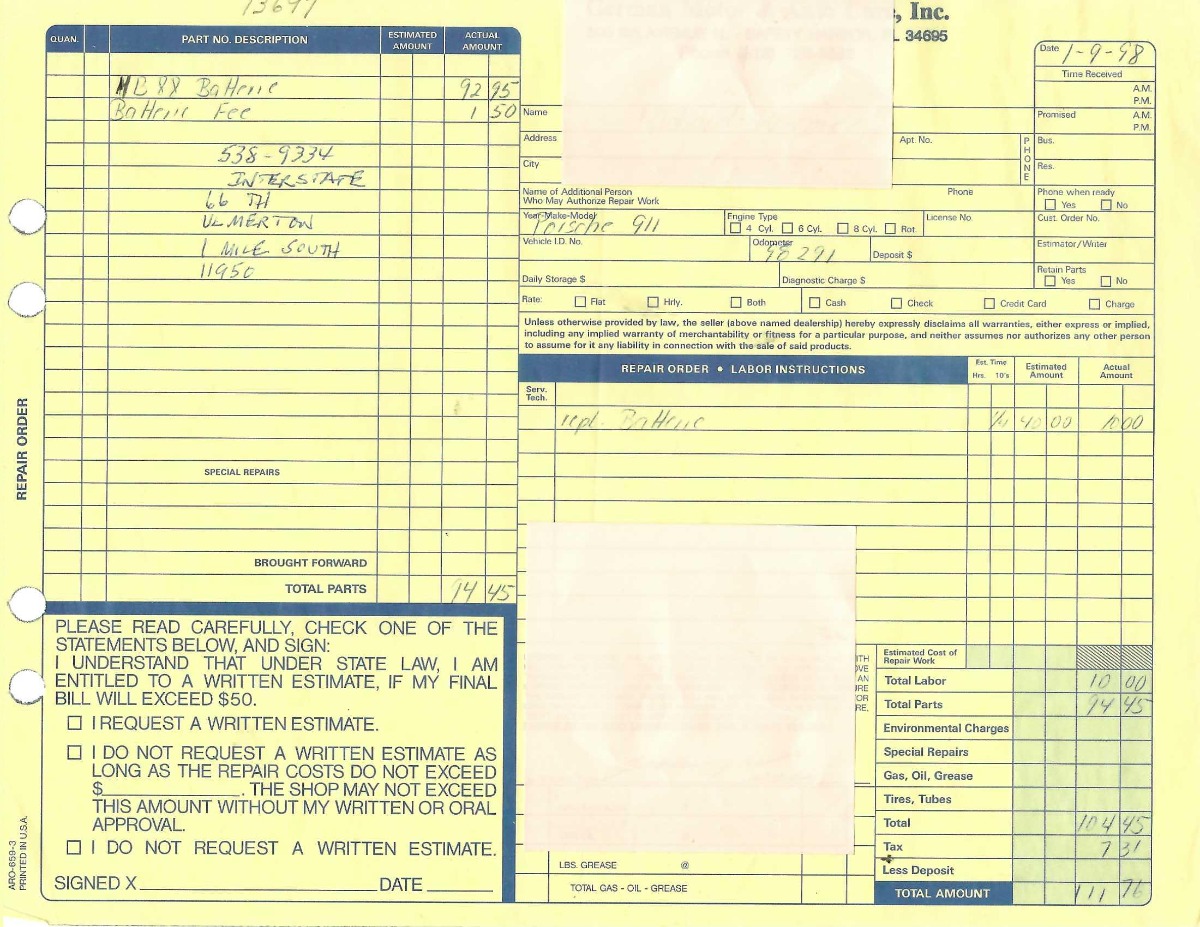 13697
, Inc.
L 34695
QUAN. PART NO. DESCRIPTION ESTIMATED AMOUNT ACTUAL AMOUNT
MB 88 Batterie 92 95
Batterie Fee 1 50
538-9334
INTERSTATE
66 TH
ULMERTON
1 MILE SOUTH
11950
SPECIAL REPAIRS
BROUGHT FORWARD
TOTAL PARTS 94 45
REPAIR ORDER
ARO-659-3
PRINTED IN U.S.A.
PLEASE READ CAREFULLY, CHECK ONE OF THE
STATEMENTS BELOW, AND SIGN:
I UNDERSTAND THAT UNDER STATE LAW, I AM
ENTITLED TO A WRITTEN ESTIMATE, IF MY FINAL
BILL WILL EXCEED $50.
☐ I REQUEST A WRITTEN ESTIMATE.
☐ I DO NOT REQUEST A WRITTEN ESTIMATE AS
LONG AS THE REPAIR COSTS DO NOT EXCEED
$____________. THE SHOP MAY NOT EXCEED
THIS AMOUNT WITHOUT MY WRITTEN OR ORAL
APPROVAL.
☐ I DO NOT REQUEST A WRITTEN ESTIMATE.
SIGNED X____________ DATE ______
Date 1-9-98
Time Received
A.M.
P.M.
Name
Promised A.M.
P.M.
Address Apt. No. PHONE Bus.
City Res.
Name of Additional Person Phone Phone when ready
Who May Authorize Repair Work ☐ Yes ☐ No
Year-Make-Model Porsche 911 Engine Type License No. Cust. Order No.
☐ 4 Cyl. ☐ 6 Cyl. ☐ 8 Cyl. ☐ Rot.
Vehicle I.D. No. Odometer 98291 Deposit $ Estimator/Writer
Daily Storage $ Diagnostic Charge $ Retain Parts
☐ Yes ☐ No
Rate: ☐ Flat ☐ Hrly. ☐ Both ☐ Cash ☐ Check ☐ Credit Card ☐ Charge
Unless otherwise provided by law, the seller (above named dealership) hereby expressly disclaims all warranties, either express or implied,
including any implied warranty of merchantability or fitness for a particular purpose, and neither assumes nor authorizes any other person
to assume for it any liability in connection with the sale of said products.
REPAIR ORDER • LABOR INSTRUCTIONS Est. Time Hrs. 10's Estimated Amount Actual Amount
Serv. Tech.
repl. Batterie 1/4 40 00 10 00
ITH
OVE
AN
URE
FOR
RE.
LBS. GREASE @
TOTAL GAS - OIL - GREASE
Estimated Cost of
Repair Work
Total Labor 10 00
Total Parts 94 45
Environmental Charges
Special Repairs
Gas, Oil, Grease
Tires, Tubes
Total 104 45
Tax 7 31
Less Deposit
TOTAL AMOUNT 111 76